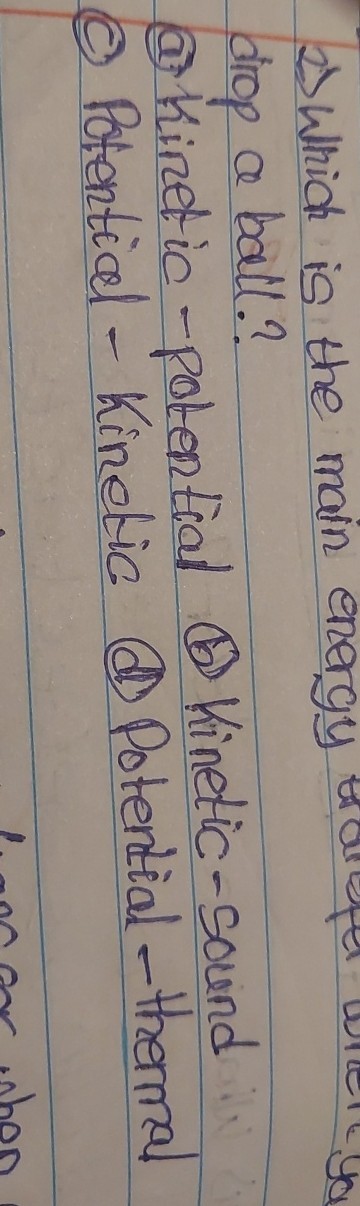 2) Which is the main energy transfer when
drop a ball?
(a) Kinetic - potential (b) Kinetic - sound
(c) Potential - Kinetic (d) Potential - thermal